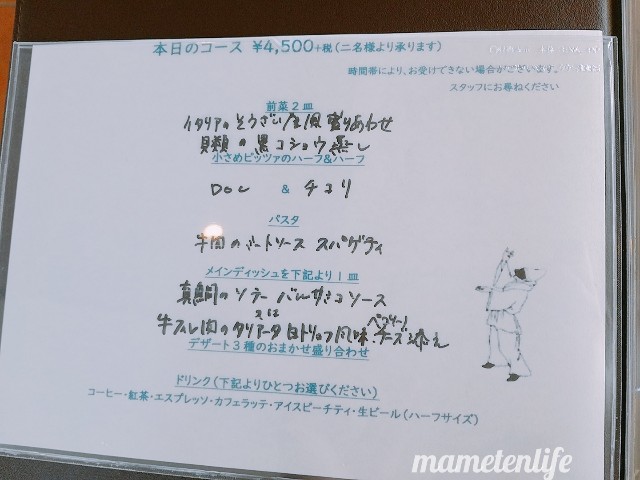 本日のコース ￥4,500+税(二名様より承ります)
時間帯により、お受けできない場合がございます。
スタッフにお尋ねください
前菜２皿
イタリアのそうざい屋風盛りあわせ
貝類の黒コショウ蒸し
小さめピッツァのハーフ&ハーフ
Doc & チコリ
パスタ
牛肉のミートソース スパゲティ
メインディッシュを下記より１皿
真鯛のソテー バルサミコソース
又は
牛ヒレ肉のタリアータ 白トリュフ風味 ペコリーノチーズ添え
デザート３種のおまかせ盛り合わせ
ドリンク(下記よりひとつお選びください)
コーヒー・紅茶・エスプレッソ・カフェラッテ・アイスピーチティ・生ビール(ハーフサイズ)
mametenlife